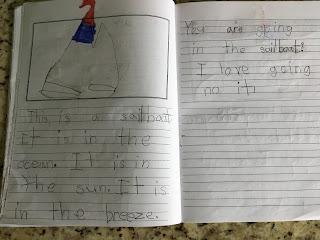 This is a sailboat
It is in the
ocean. It is in
The sun. It is
in the breeze.
You are going
in the sailboat!
I love going
no it!